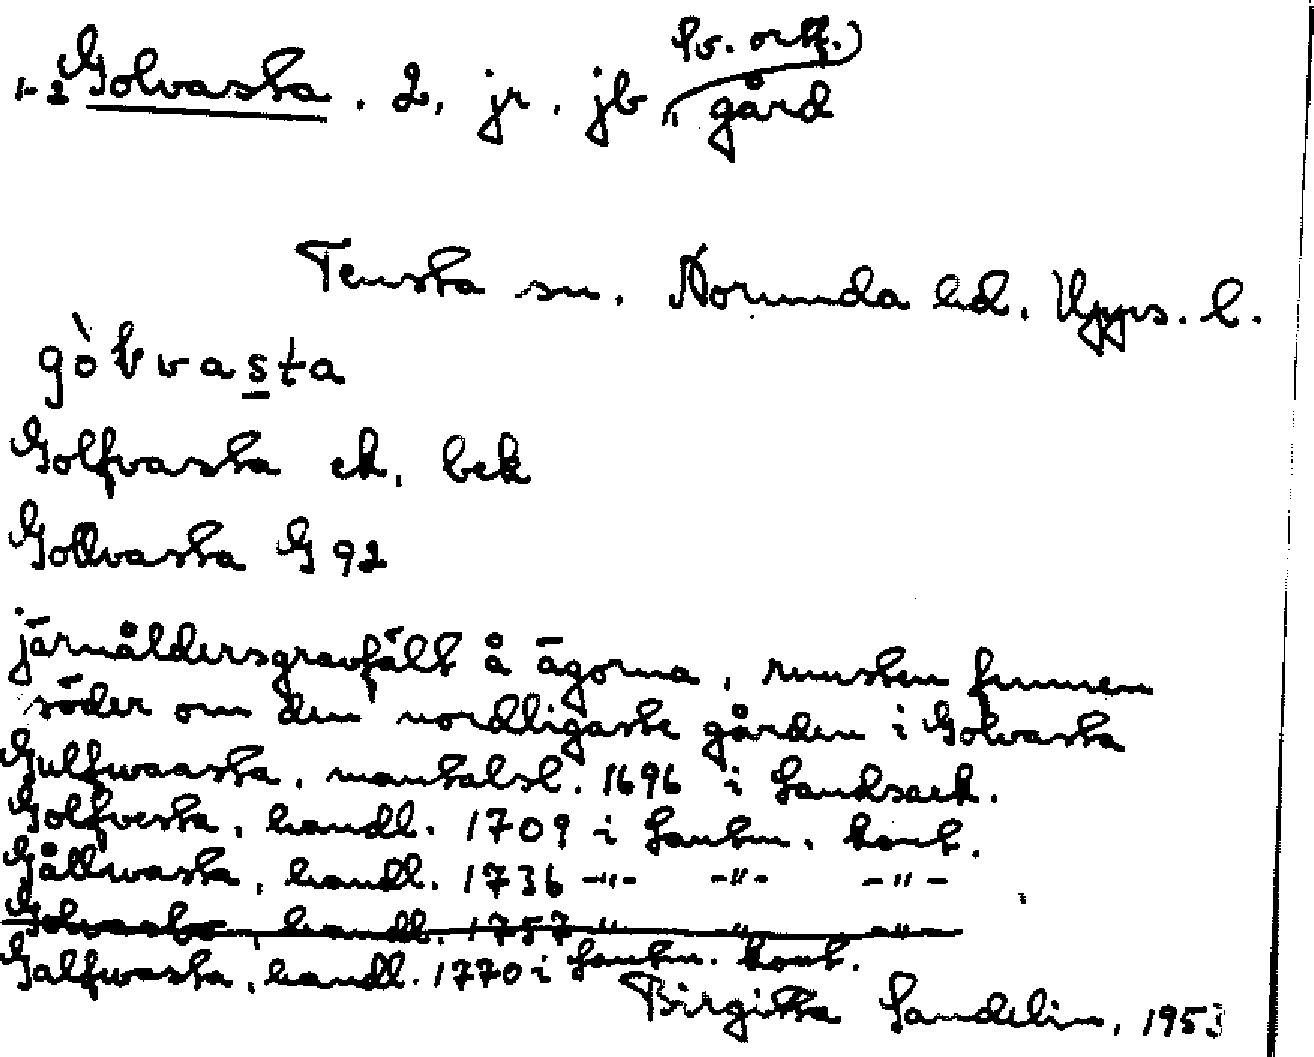 1-2 Golvasta. 2, jr. jb, gård (Sv. ort.)
Tensta sn. Norunda hd. Upps. l.
gòlvasta
Golfvasta ek. bek
Gollvasta G 92
järnåldersgravfält å ägorna, runsten funnen
söder om den nordligaste gården i Golvasta
Gulfwaasta, mantalsl. 1696 i Landsark.
Golfvesta, handl. 1709 i Lantm. kont.
Gållwasta, handl. 1736 -"- -"- -"-
Golvasbo, handl. 1757 " -"- -"-
Galfwasta, handl. 1770 i Lantm. kont.
Birgitta Sandelin, 1953